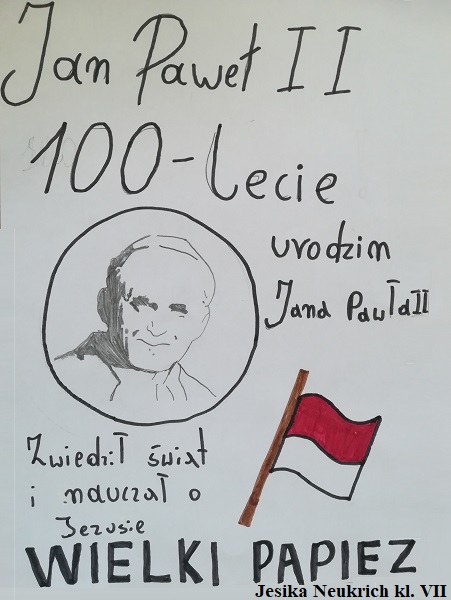 Jan Paweł II
100-lecie
urodzin
Jana Pawła II
Zwiedził świat
i nauczał o
Jezusie
WIELKI PAPIEZ
Jesika Neukrich kl. VII